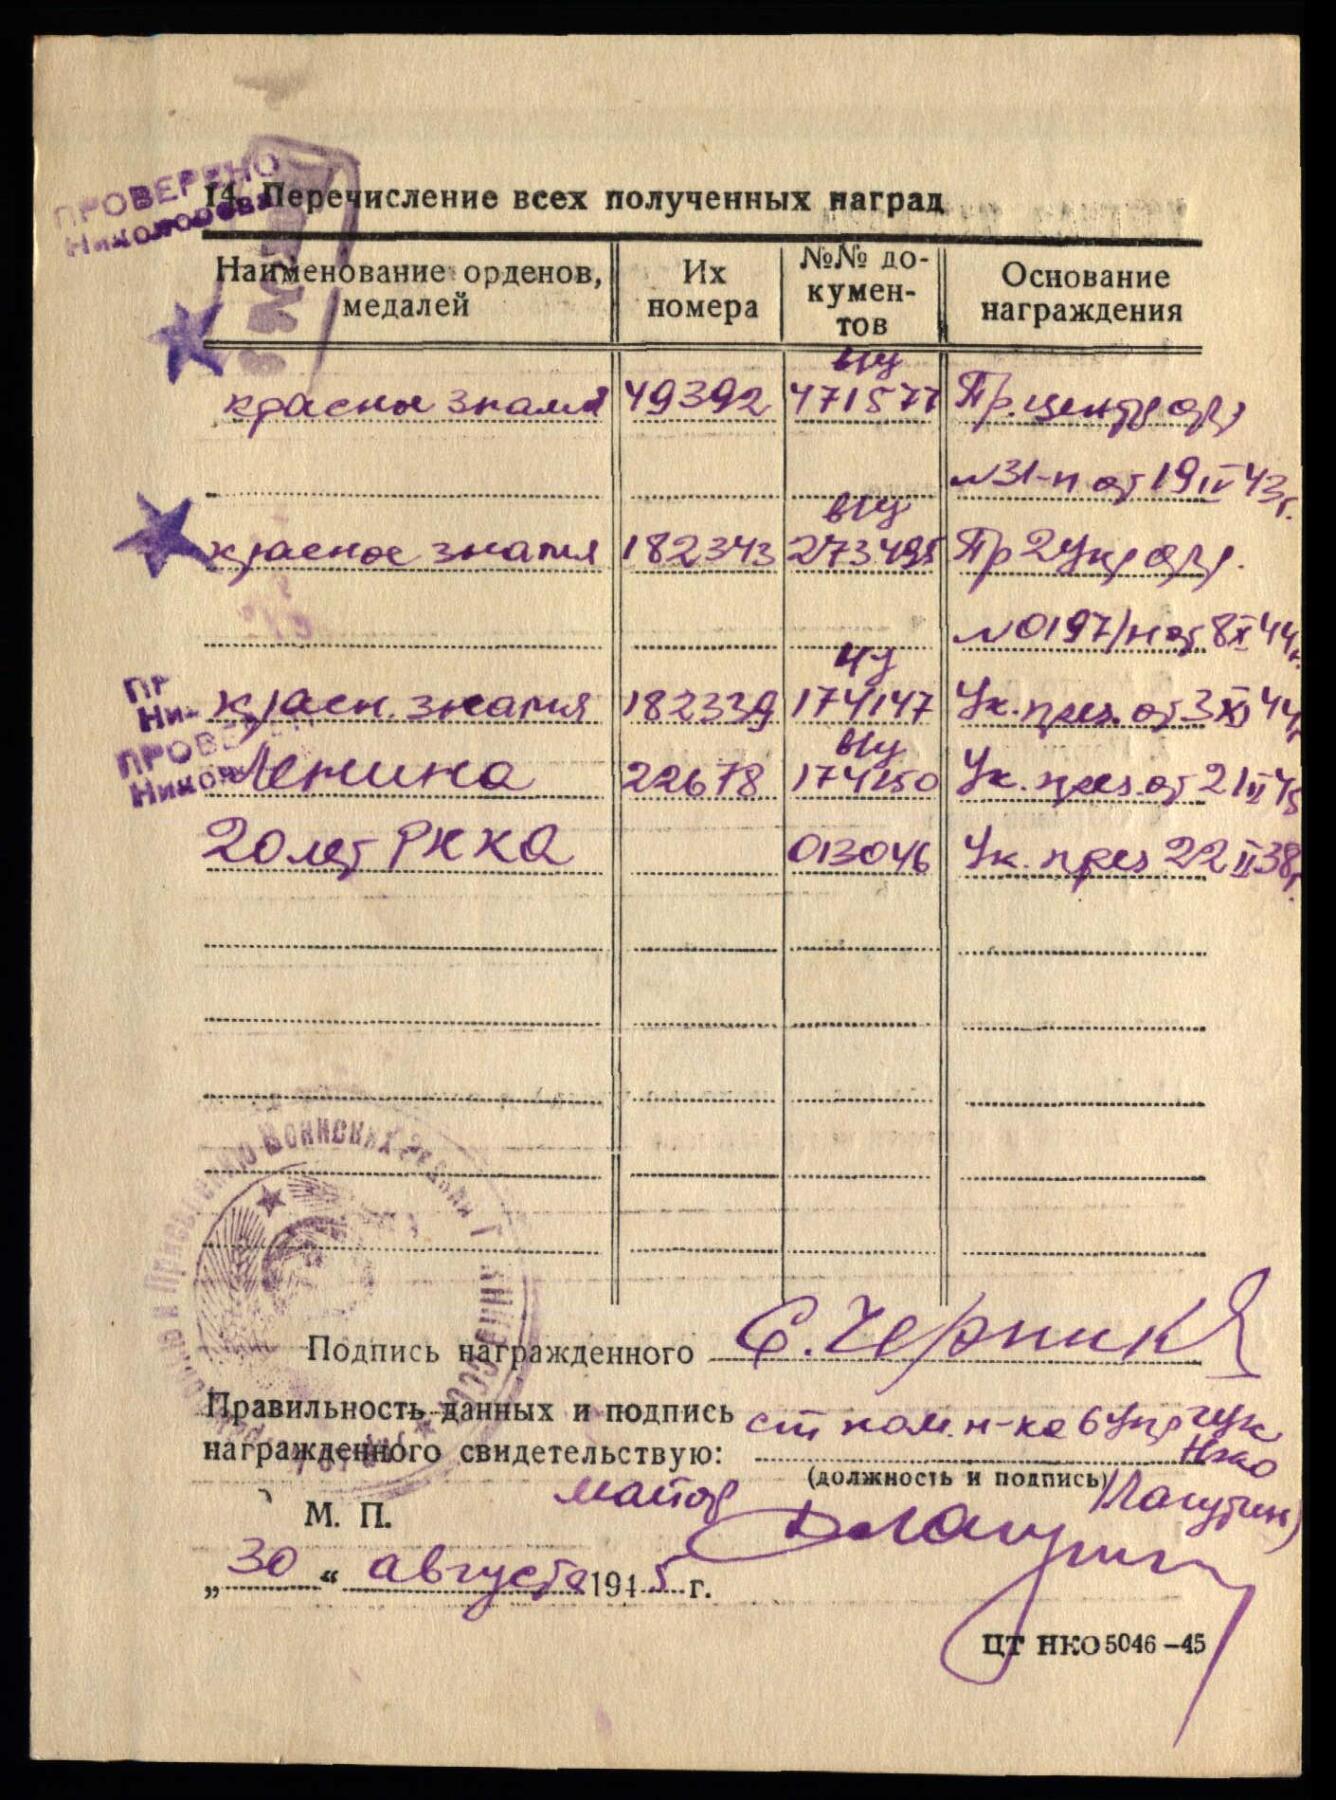 ПРОВЕРЕНО
14. Перечисление всех полученных наград
Наименование орденов, медалей
Их номера
№№ документов
Основание награждения
в/у
красное знамя 49392 471577 Пр. центр фр
№31-н от 19 IV 43 г.
в/у
красное знамя 182343 273495 Пр 2 Укр фр.
№0197/н от 8 XI 44 г.
красн. знамя 182339 174147 Ук. през. от 3 XI 44 г.
ПРОВЕРЕНО
в/у
Ленина 22678 174150 Ук. през. от 21 II 45
20 лет РККА 013046 Ук. през 22 II 38 г.
Подпись награжденного С. Черник
Правильность данных и подпись ст пом. н-ка 6 упр ГУК
награжденного свидетельствую: НКО
(должность и подпись)
майор (Лагутин)
М. П.
„30“ августа 1945 г.
ЦТ НКО 5046–45